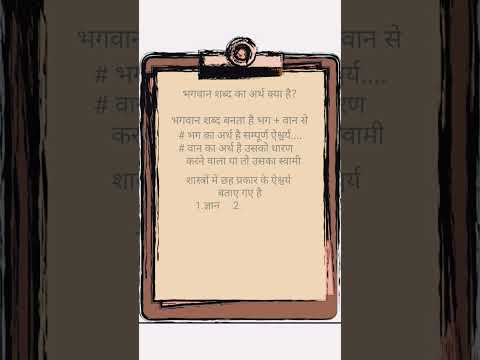 भगवान शब्द का अर्थ क्या है?
भगवान शब्द बनता है भग + वान से
# भग का अर्थ है सम्पूर्ण ऐश्वर्य....
# वान का अर्थ है उसको धारण
करने वाला या तो उसका स्वामी
शास्त्रों में छह प्रकार के ऐश्वर्य
बताए गए है
1.ज्ञान 2.